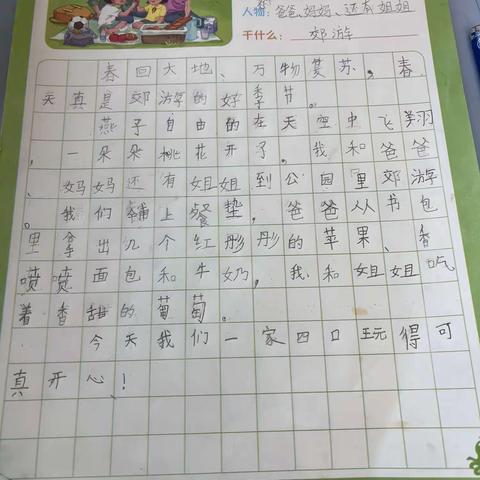 人物：爸爸、妈妈、还有姐姐
干什么：郊游
春回大地、万物复苏，春
天真是郊游的好季节。
燕子自由的在天空中飞翔
，一朵朵桃花开了。我和爸爸
、妈妈还有姐姐到公园里郊游
。我们铺上餐垫，爸爸从书包
里拿出几个红彤彤的苹果、香
喷喷面包和牛奶，我和姐姐吃
着香甜的葡萄。
今天我们一家四口玩得可
真开心！